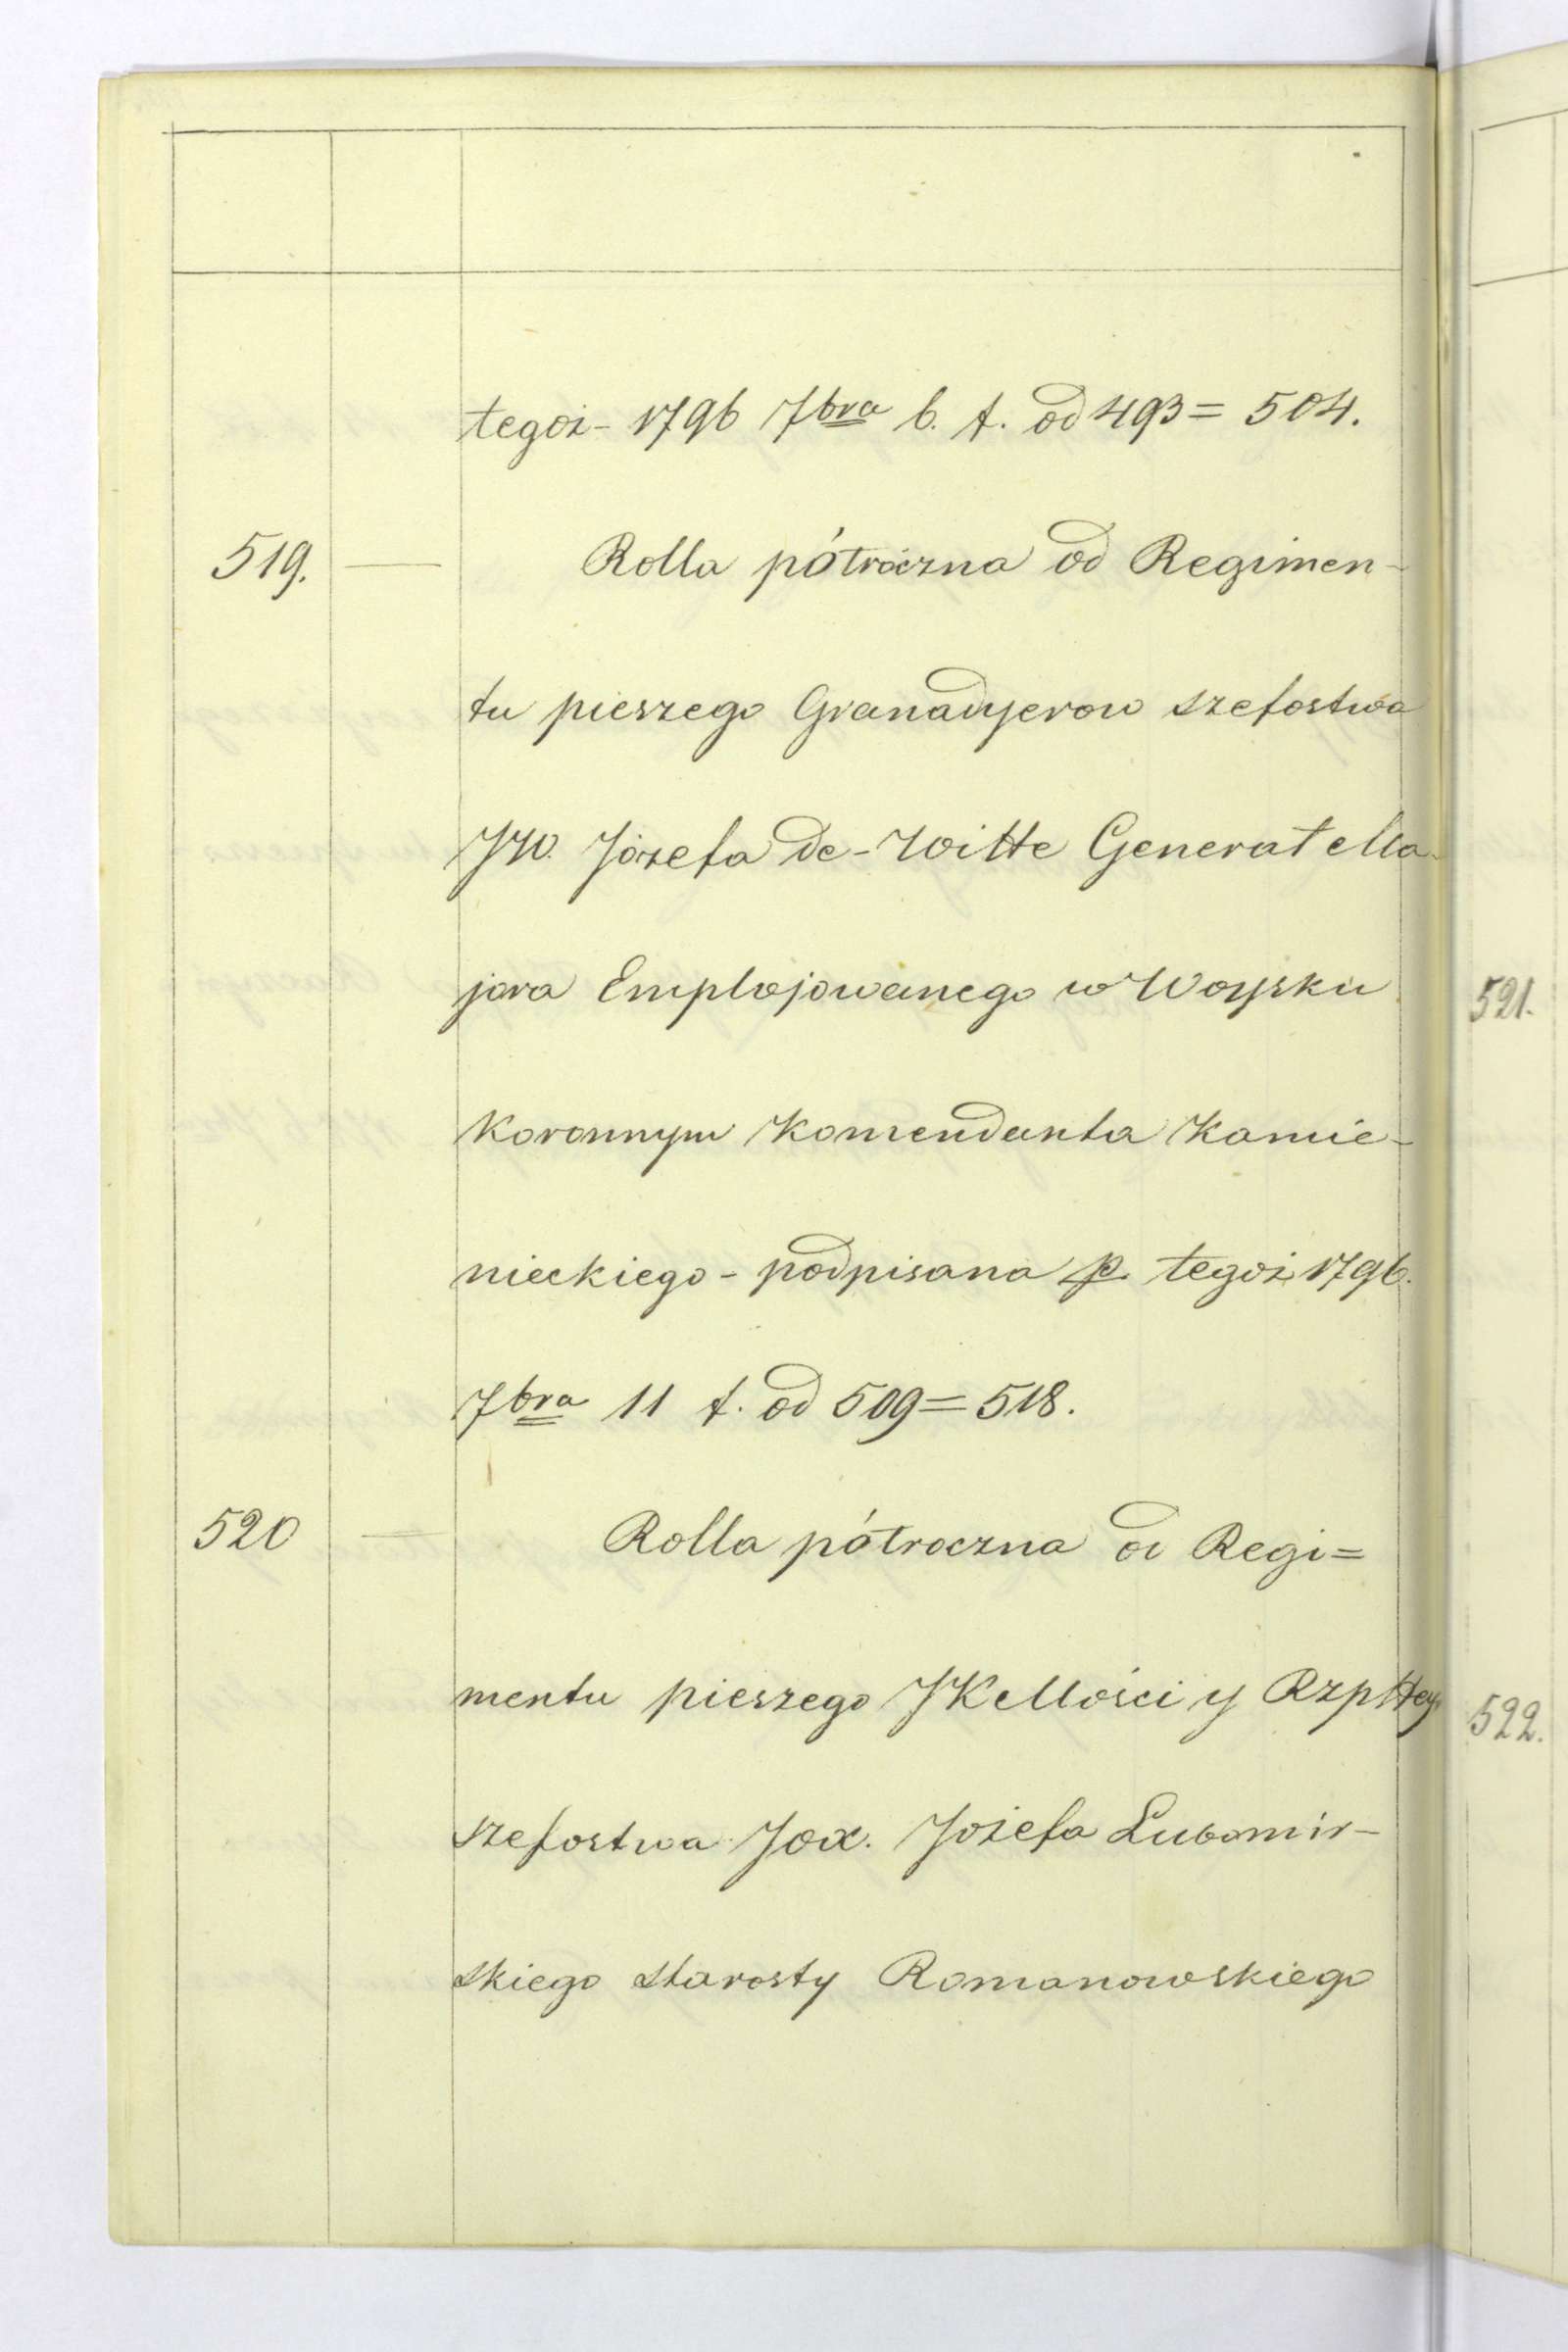 tegoż - 1796 7bra 6. f. od 493 = 504.
519. — Rolla półroczna od Regimen-
tu pieszego Granadyerow szefostwa
JW. Józefa de-Witte Generał Ma-
jora Emplojowanego w Woysku
Koronnym Komendanta Kamie-
nieckiego - podpisana p. tegoż 1796.
7bra 11 f. od 509 = 518.
520 — Rolla półroczna od Regi=
mentu pieszego JKMości y Rzpttey
szefostwa Jox. Jożefa Lubomir-
skiego starosty Romanowskiego
521.
522.